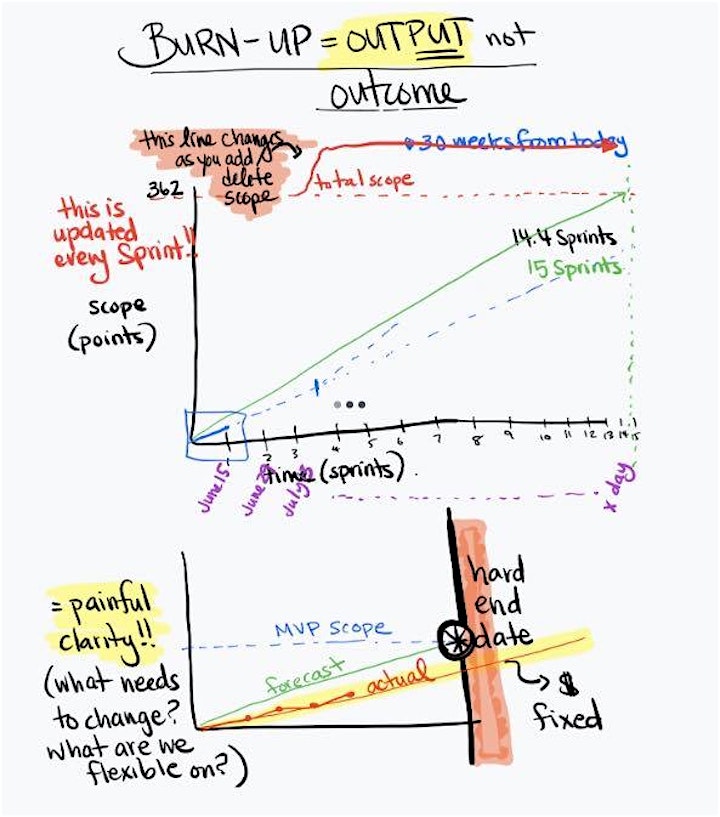 BURN-UP = OUTPUT not
outcome
this line changes
as you add/
delete
scope
30 weeks from today
362
total scope
this is
updated
every Sprint!!
14.4 Sprints
15 Sprints
scope
(points)
1 2 3 4 5 6 7 8 9 10 11 12 13 14 15
time (sprints)
June 15
June 29
July 13
x day
= painful
clarity!!
(what needs
to change?
what are we
flexible on?)
MVP SCOPE
forecast
actual
hard
end
date
$
fixed